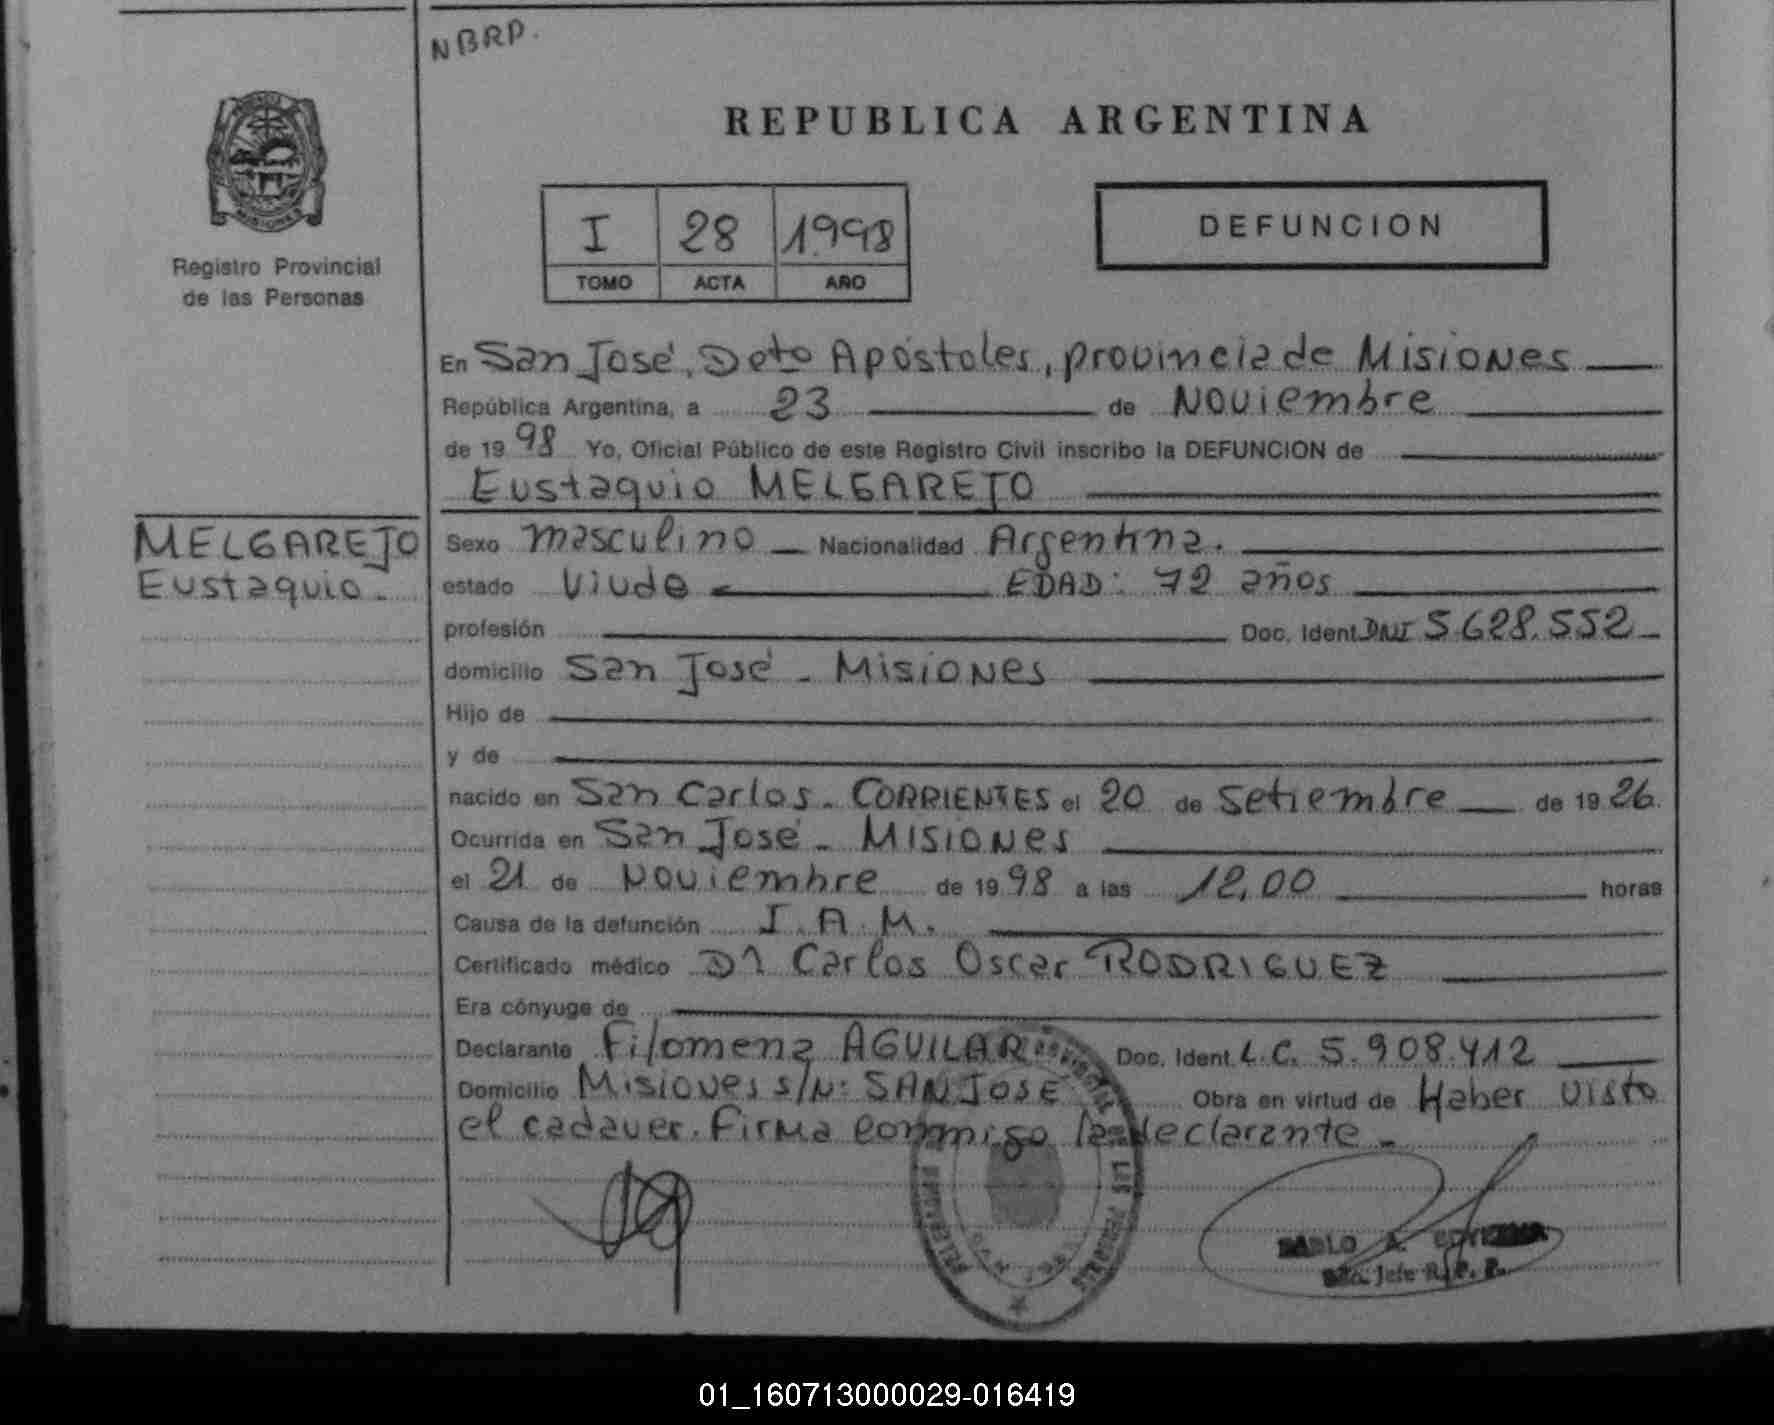 NBRP.
REPUBLICA ARGENTINA
I 28 1998
TOMO ACTA AÑO
DEFUNCION
MISIONES
Registro Provincial
de las Personas
En San José, Dpto Apóstoles, provincia de Misiones
República Argentina, a 23 de Noviembre
de 1998 Yo, Oficial Público de este Registro Civil inscribo la DEFUNCION de
Eustaquio MELGAREJO
MELGAREJO
Eustaquio.
Sexo masculino Nacionalidad Argentina.
estado Viudo EDAD: 72 años
profesión Doc. Ident. DNI 5.628.552
domicilio San José - Misiones
Hijo de
y de
nacido en San Carlos - CORRIENTES el 20 de Setiembre de 1926.
Ocurrida en San José - MISIONES
el 21 de Noviembre de 1998 a las 12,00 horas
Causa de la defunción I.A.M.
Certificado médico Dr Carlos Oscar RODRIGUEZ
Era cónyuge de
Declarante Filomena AGUILAR Doc. Ident. L.C. 5.908.412
Domicilio Misiones s/N: SAN JOSE Obra en virtud de Haber visto
el cadaver. Firma conmigo la declarante -
PABLO A.
Jefe R. P. P.
01_160713000029-016419